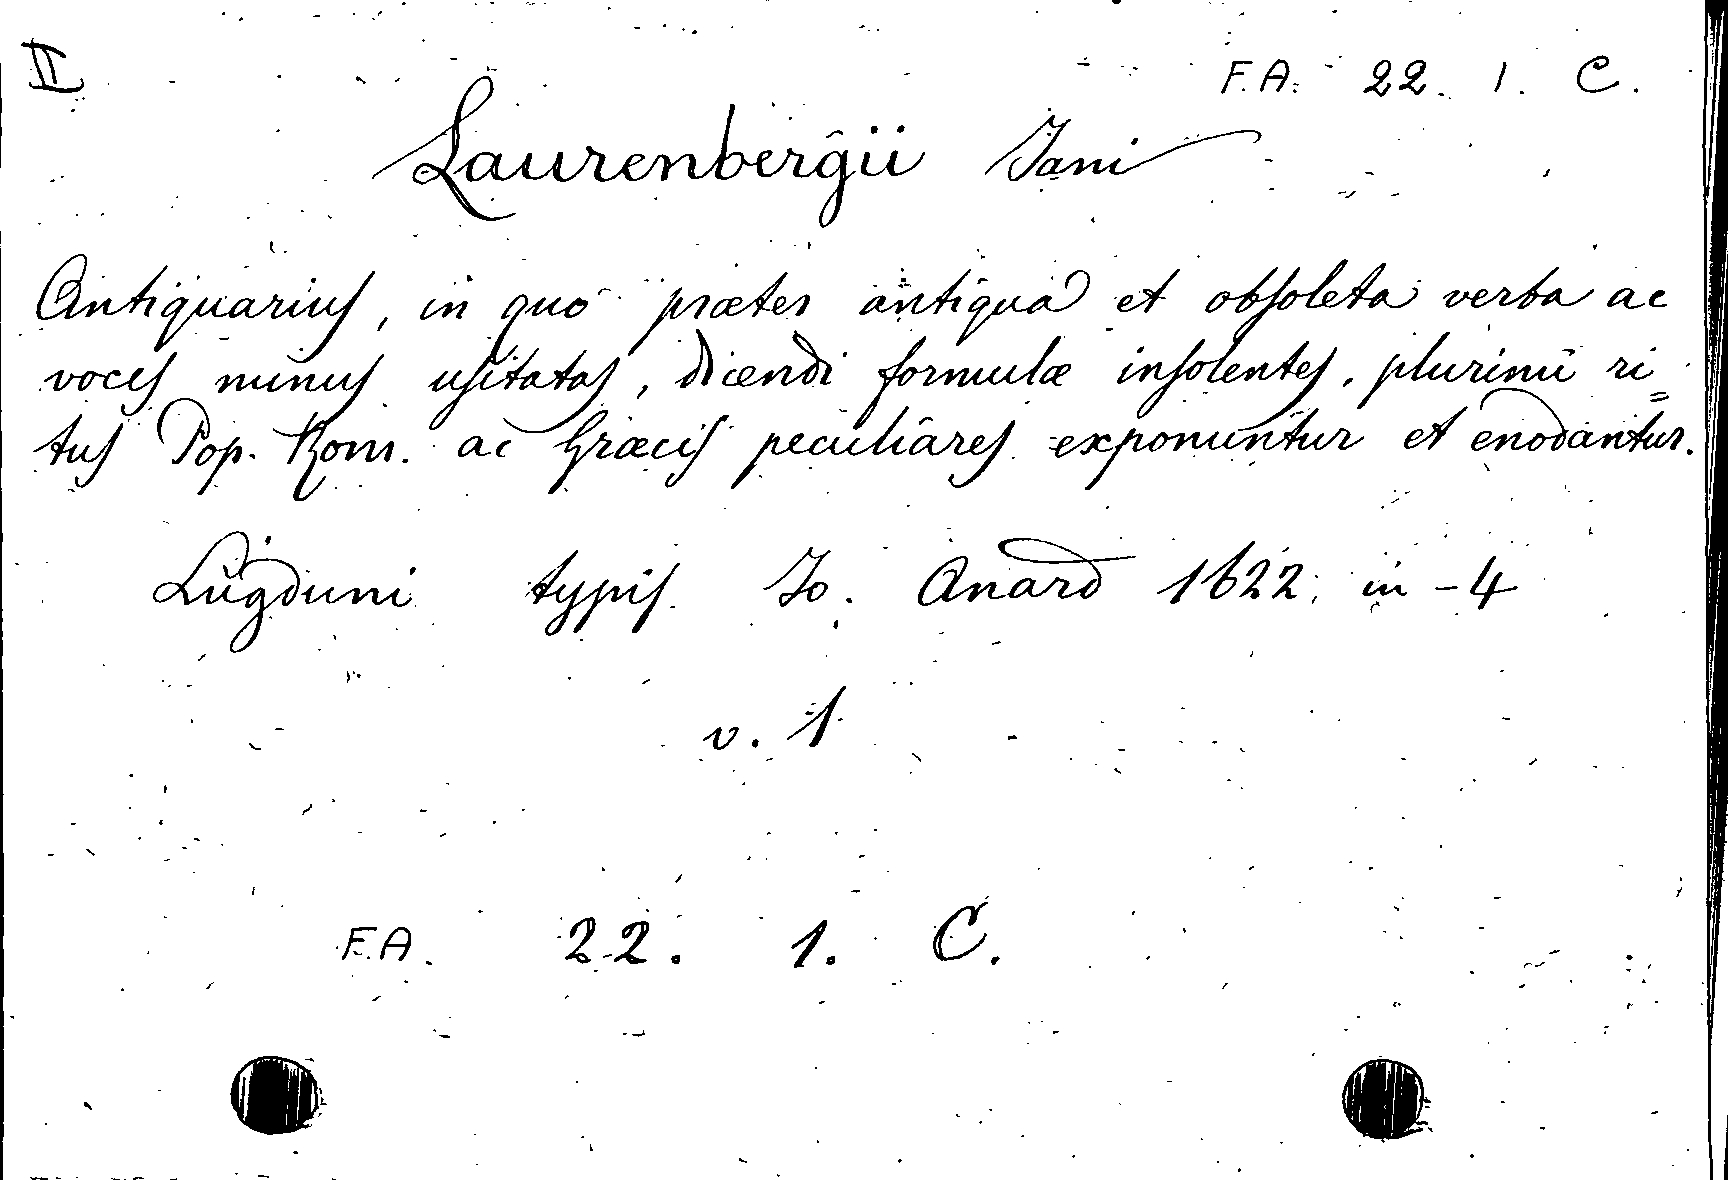 II
F.A. 22. 1. C.
Laurenbergii Jani
Antiquarius, in quo præter antiqua et obsoleta verba ac
voces minus usitatas, dicendi formulæ insolentes, plurimi ri=
tus Pop. Rom. ac Græcis peculiares exponuntur et enodantur.
Lugduni typis Jo. Anard 1622. in-4
v. 1
F.A. 22. 1. C.